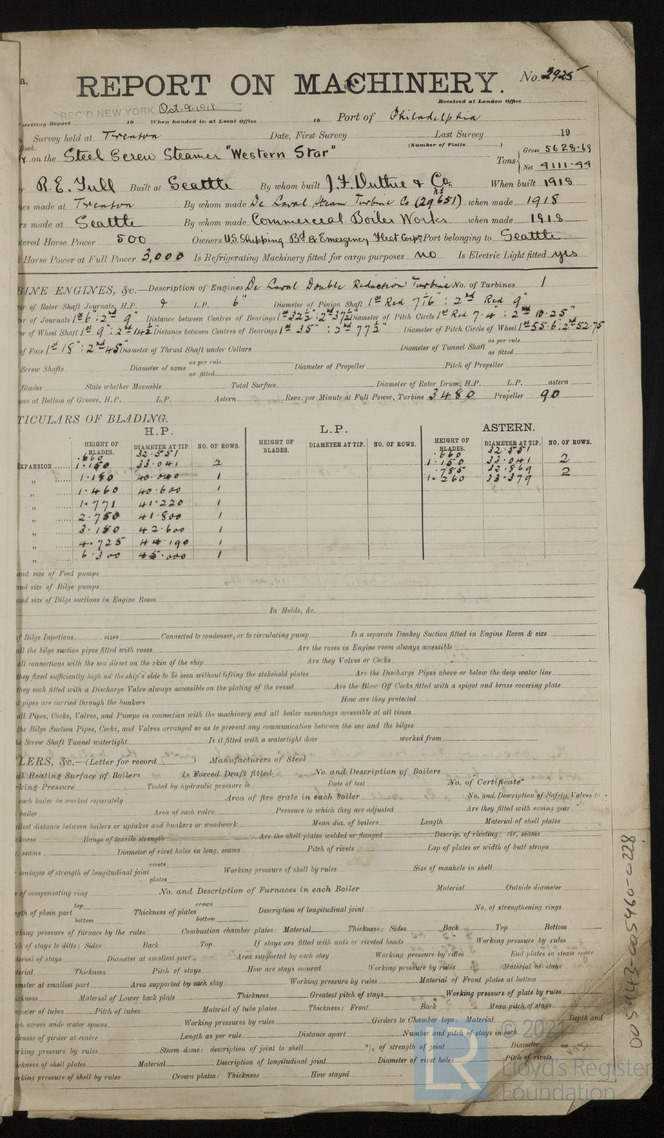 a. REPORT ON MACHINERY. No. 2925
Received at London Office
REC'D NEW YORK Oct. 9. 1918
Writing Report 19 When handed in at Local Office 19 Port of Philadelphia
Survey held at Trenton Date, First Survey Last Survey 19
Book. (Number of Visits
on the Steel Screw Steamer "Western Star" Tons Gross 5628.69 Net 4111.44
R.E. Tull Built at Seattle By whom built J.F. Duthie & Co. When built 1918
es made at Trenton By whom made De Laval Steam Turbine Co (No 29651) when made 1918
rs made at Seattle By whom made Commercial Boiler Works when made 1918
tered Horse Power 500 Owners U.S. Shipping Bd & Emergency Fleet Corp Port belonging to Seattle
Horse Power at Full Power 3,000 Is Refrigerating Machinery fitted for cargo purposes no Is Electric Light fitted yes
BINE ENGINES, &c.—Description of Engines De Laval Double Reduction Turbine No. of Turbines 1
er of Rotor Shaft Journals, H.P. L.P. 6" Diameter of Pinion Shaft 1st Red 7 7/16" : 2nd Red 9"
er of Journals 1st 6" : 2nd 9" Distance between Centres of Bearings 1st 32½" : 2nd 37½" Diameter of Pitch Circle 1st Red 7.4" : 2nd 10.25"
er of Wheel Shaft 1st 9" : 2nd 14½" Distance between Centres of Bearings 1st 35" : 2nd 77½" Diameter of Pitch Circle of Wheel 1st 55.6 : 2nd 52.75
of Face 1st 18" : 2nd 45" Diameter of Thrust Shaft under Collars Diameter of Tunnel Shaft as per rule as fitted
Screw Shafts Diameter of same as per rule as fitted Diameter of Propeller Pitch of Propeller
Blades State whether Moveable Total Surface Diameter of Rotor Drum, H.P. L.P. astern
ess at Bottom of Groove, H.P. L.P. Astern Revs. per Minute at Full Power, Turbine 3480 Propeller 90
TICULARS OF BLADING.
H.P. L.P. ASTERN.
HEIGHT OF BLADES. DIAMETER AT TIP. NO. OF ROWS. HEIGHT OF BLADES. DIAMETER AT TIP. NO. OF ROWS. HEIGHT OF BLADES. DIAMETER AT TIP. NO. OF ROWS.
.660 32.551 .660 32.551
EXPANSION 1.150 33.041 2 1.150 33.041 2
" 1.180 40.040 1 .785 32.869 2
1.260 33.379
" 1.460 40.600 1
" 1.771 41.220 1
" 2.750 41.800 1
" 3.150 42.600 1
" 4.725 44.190 1
" 6.300 45.000 1
and size of Feed pumps
and size of Bilge pumps
and size of Bilge suctions in Engine Room
In Holds, &c.
of Bilge Injections sizes Connected to condenser, or to circulating pump Is a separate Donkey Suction fitted in Engine Room & size
all the bilge suction pipes fitted with roses Are the roses in Engine room always accessible
all connections with the sea direct on the skin of the ship Are they Valves or Cocks
they fixed sufficiently high on the ship's side to be seen without lifting the stokehold plates Are the Discharge Pipes above or below the deep water line
they each fitted with a Discharge Valve always accessible on the plating of the vessel Are the Blow Off Cocks fitted with a spigot and brass covering plate
pipes are carried through the bunkers How are they protected
all Pipes, Cocks, Valves, and Pumps in connection with the machinery and all boiler mountings accessible at all times
the Bilge Suction Pipes, Cocks, and Valves arranged so as to prevent any communication between the sea and the bilges
he Screw Shaft Tunnel watertight Is it fitted with a watertight door worked from
LERS, &c.—(Letter for record ) Manufacturers of Steel
al Heating Surface of Boilers Is Forced Draft fitted No. and Description of Boilers
king Pressure Tested by hydraulic pressure to Date of test No. of Certificate
each boiler be worked separately Area of fire grate in each boiler No. and Description of Safety Valves to
boiler Area of each valve Pressure to which they are adjusted Are they fitted with easing gear
llest distance between boilers or uptakes and bunkers or woodwork Mean dia. of boilers Length Material of shell plates
ckness Range of tensile strength Are the shell plates welded or flanged Descrip. of riveting: cir. seams
. seams Diameter of rivet holes in long. seams Pitch of rivets Lap of plates or width of butt straps
rcentages of strength of longitudinal joint rivets plates Working pressure of shell by rules Size of manhole in shell
e of compensating ring No. and Description of Furnaces in each Boiler Material Outside diameter
gth of plain part top bottom Thickness of plates crown bottom Description of longitudinal joint No. of strengthening rings
rking pressure of furnace by the rules Combustion chamber plates: Material Thickness: Sides Back Top Bottom
ch of stays to ditto: Sides Back Top If stays are fitted with nuts or riveted heads Working pressure by rules
terial of stays Diameter at smallest part Area supported by each stay Working pressure by rules End plates in steam space
terial Thickness Pitch of stays How are stays secured Working pressure by rules Material of stays
meter at smallest part Area supported by each stay Working pressure by rules Material of Front plates at bottom
ickness Material of Lower back plate Thickness Greatest pitch of stays Working pressure of plate by rules
meter of tubes Pitch of tubes Material of tube plates Thickness: Front Back Mean pitch of stays
ch across wide water spaces Working pressures by rules Girders to Chamber tops: Material Depth and
ckness of girder at centre Length as per rule Distance apart Number and pitch of stays in
rking pressure by rules Steam dome: description of joint to shell % of strength of joint Diameter
ckness of shell plates Material Description of longitudinal joint Diameter of rivet holes Pitch of rivets
rking pressure of shell by rules Crown plates: Thickness How stayed
005943-005960-0228
LR
Lloyd's Register
Foundation